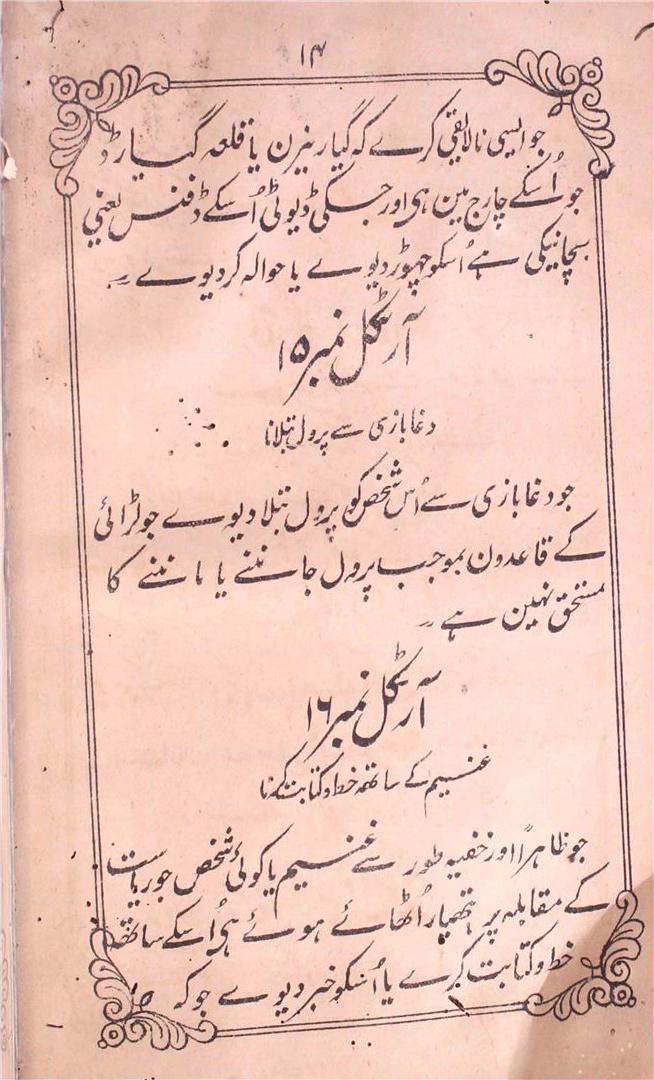 ۱۴
جو ایسی نالایقی کرے کہ گیاریزن یا قلعہ گیارڈ
جو اُسکے چارج مین ہی اور جسکی ڈیوٹی اُسکے ڈفنس یعنی
بچانیکی ہے اُسکو چہوڑ دیوے یا حوالہ کر دیوے ۔
آرٹکل نمبر ۱۵
دغابازی سے پرول بتلانا
جو دغابازی سے اُس شخص کو پرول بتلا دیوے جو لڑائی
کے قاعدون بموجب پرول جاننے یا ماننے کا
مستحق نہین ہے ۔
آرٹکل نمبر ۱۶
غنیم کے ساتھہ خط و کتابت کرنا
جو ظاہراً اور خفیہ طور سے غنیم یا کوئی شخص جو ریاست
کے مقابلہ پر ہتھیار اُٹھائے ہوئے ہی اُسکے ساتھہ
خط و کتابت کرے یا اُسکو خبر دیوے جو کہ